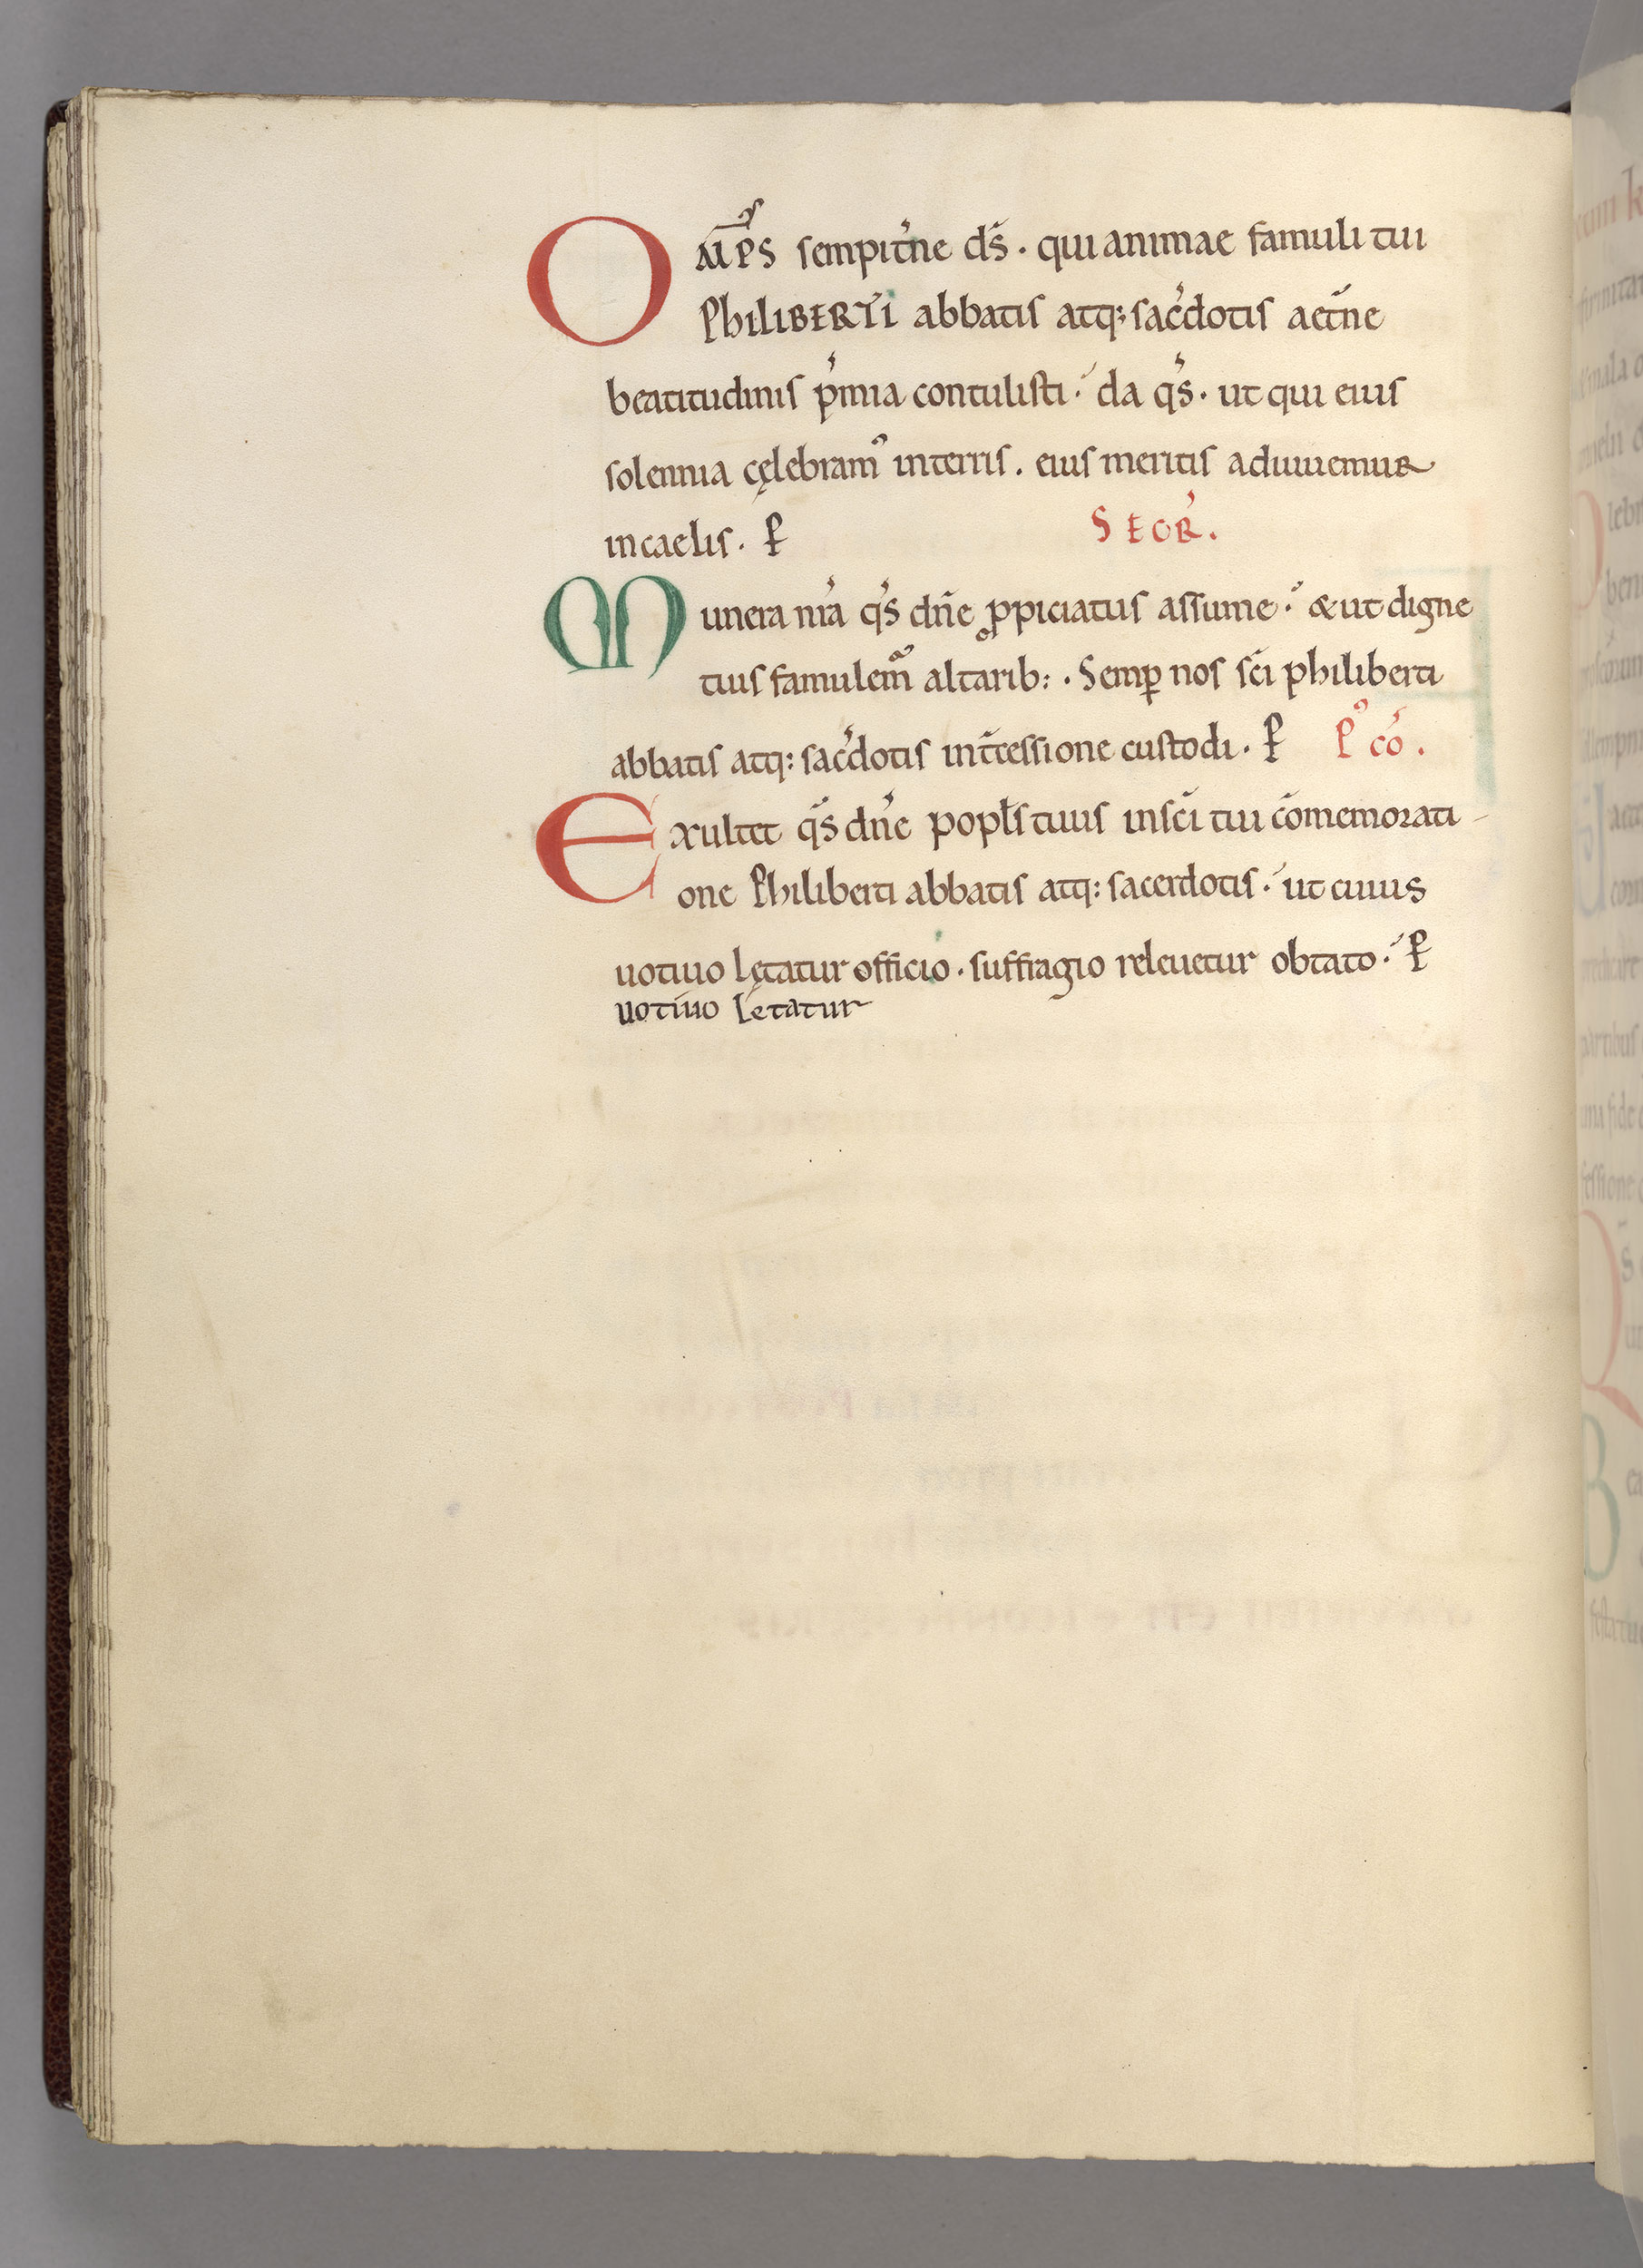 OM̅P̅S sempit̉ne ds̄ . qui animae famuli tui
PhiliBERTi abbatis atq; sac̉dotis aet̄ne
beatitudinis p̉mia contulisti . da qs̉ . ut qui eius
solennia cęlebram᾽ interris . eius meritis adiuuemur
incaelis . ꝑ SECR̉ .
Munera nr̉a qs̉ dn̄e ꝓpiciatus assume . & ut digne
tuis famulem᾽ altarib: . Semꝑ nos sc̄i philiberti
abbatis atq: sac̉dotis int̄cessione custodi . ꝑ P᾽ cō .
Exultet qs̄ dn̉e popl̄s tuus insc̄i tui c̄omemorati-
one Philiberti abbatis atq: sacerdotis . ut cuius
uotiuo lętatur officio . suffragio releuetur obtato . ꝑ
uotiuo lętatur